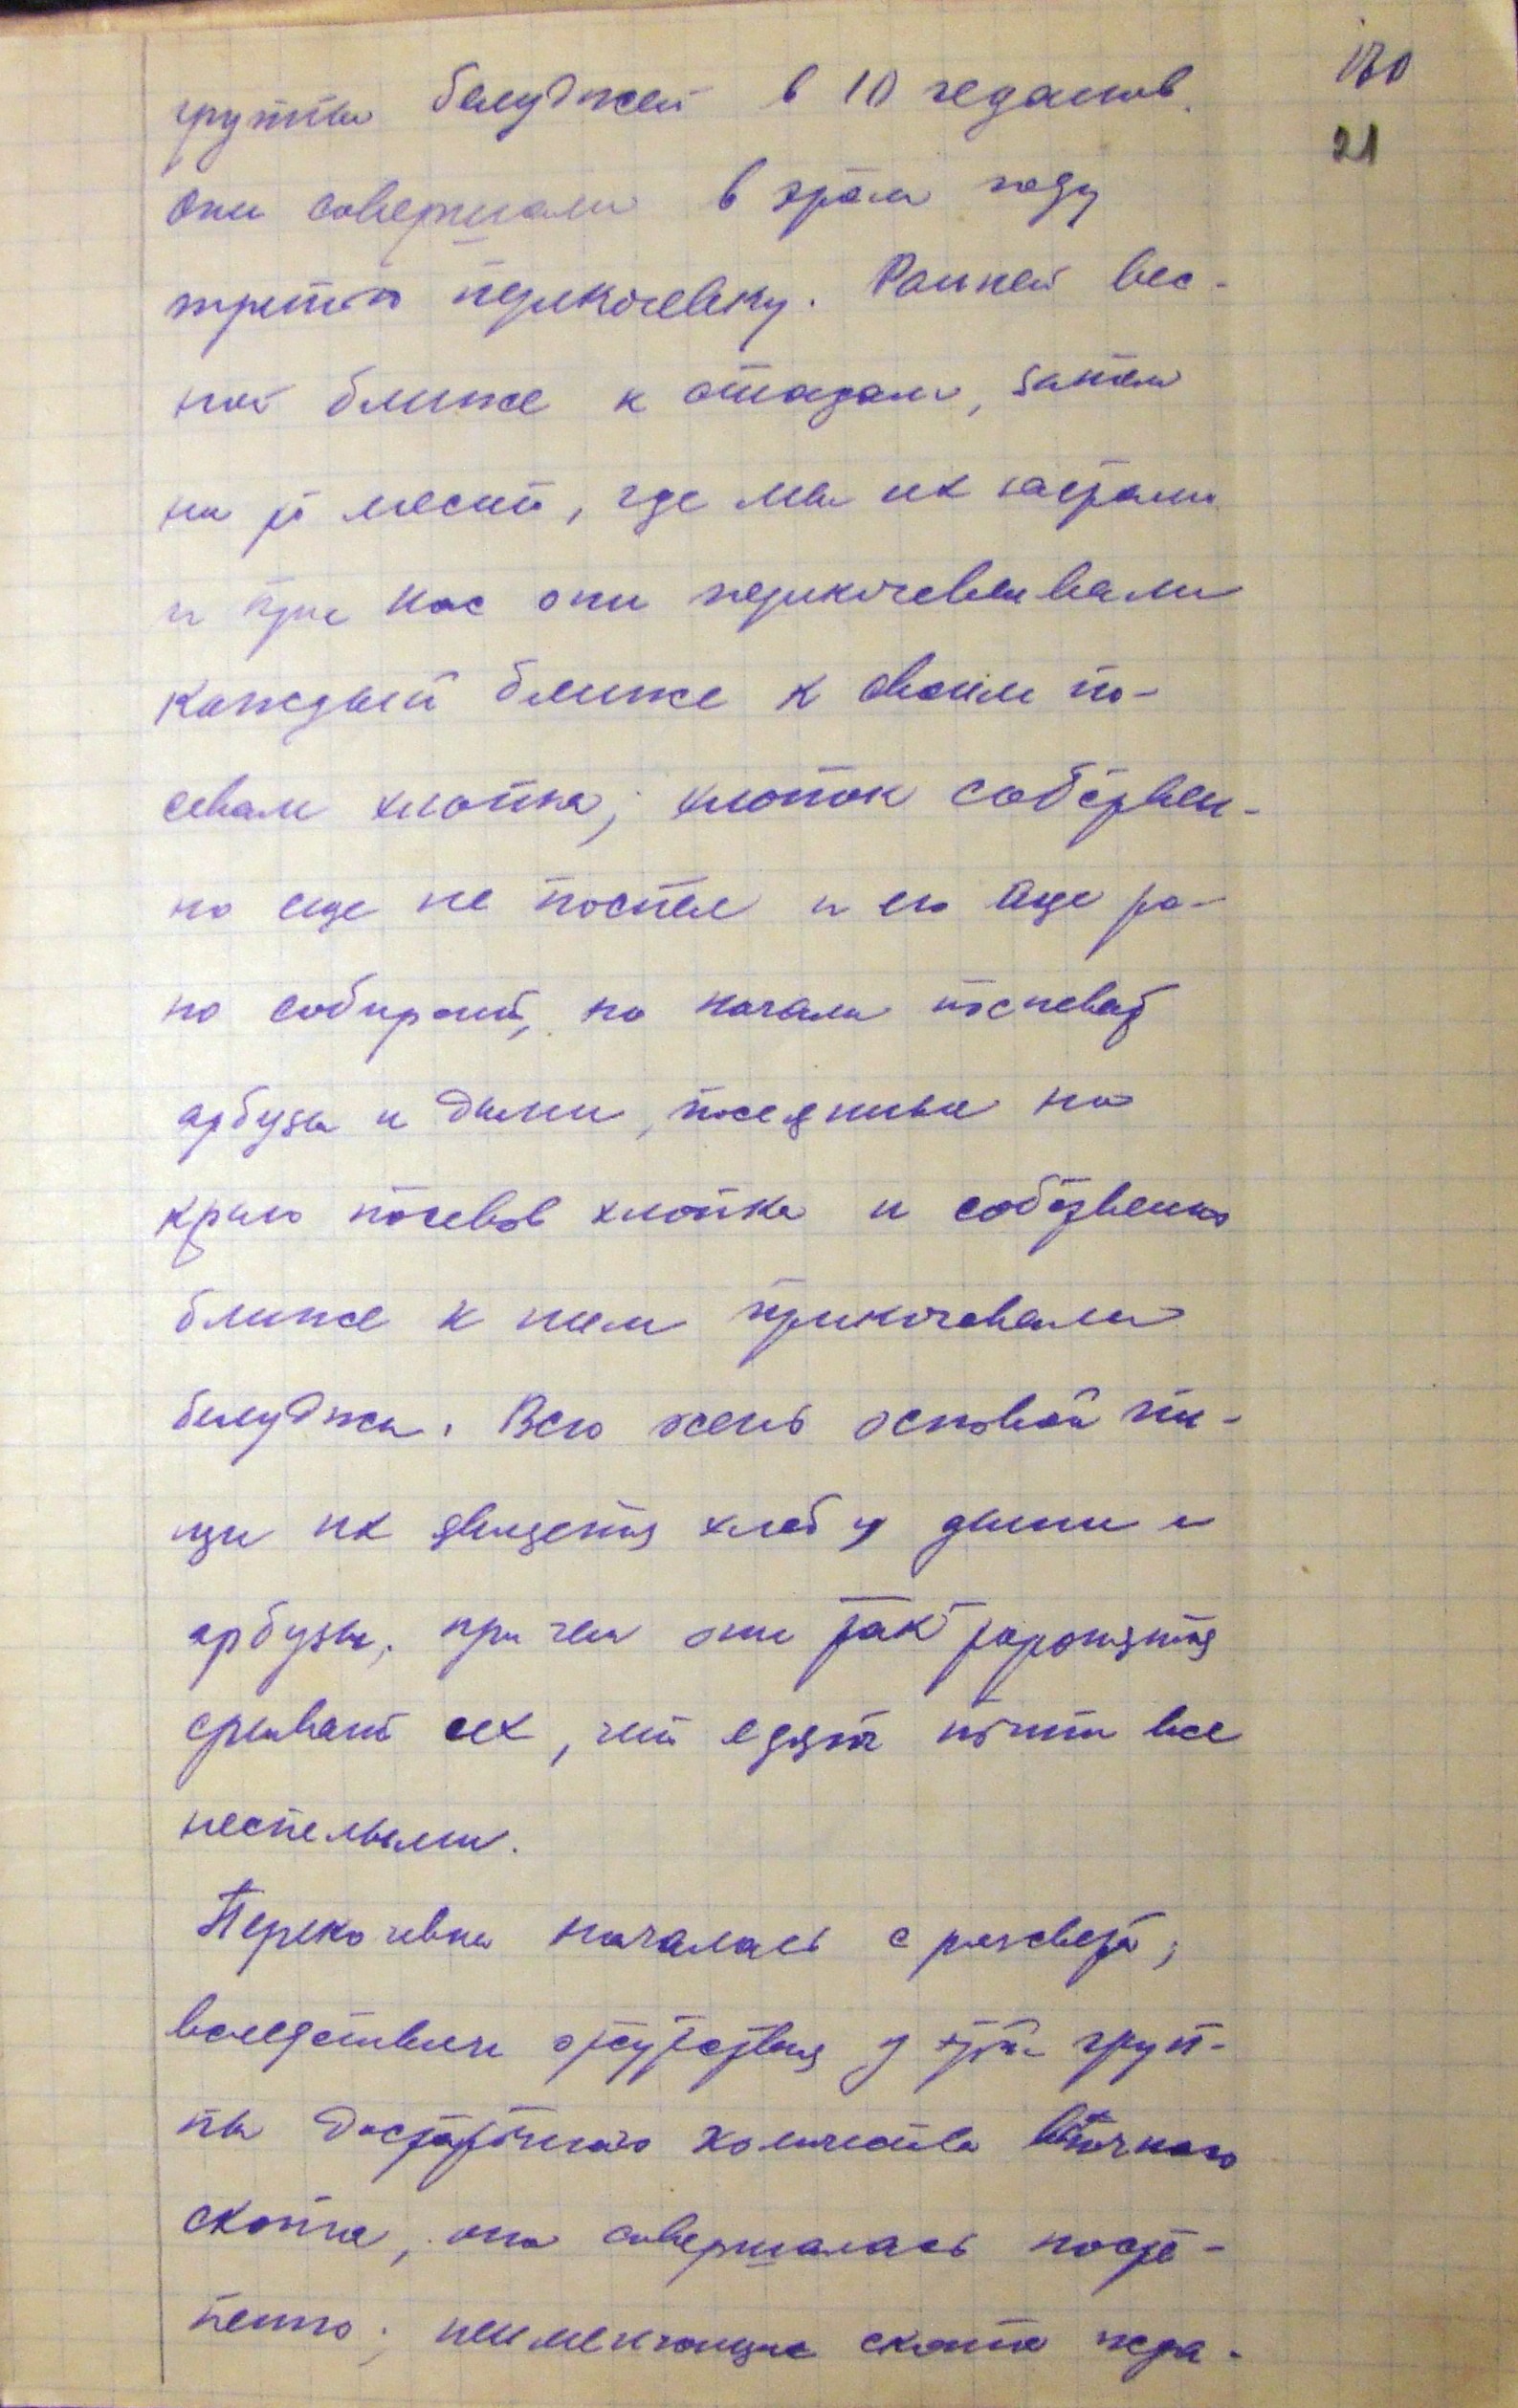 130
21
группы белуджей в 10 гедамов.
Они совершали в этом году
третью перекочевку. Ранней вес-
ной ближе к стадам, затем
на то место, где мы их застали
и при нас они перекочевывали
каждый ближе к своим по-
севам хлопка; хлопок собствен-
но еще не поспел и его еще ра-
но собирать, но начали поспевать
арбузы и дыни, посеянные по
краю посевов хлопка и собственно
ближе к ним прикочевали
белуджи. Всю осень основой пи-
щи их являются хлеб и дыни и
арбузы, при чем они так торопятся
срывать их, что едят почти все
неспелыми.
Перекочевка началась с рассвета;
вследствии отсутствия у этой груп-
пы достаточного количества вьючного
скота, она совершалась посте-
пенно; неимеющие скота жда-